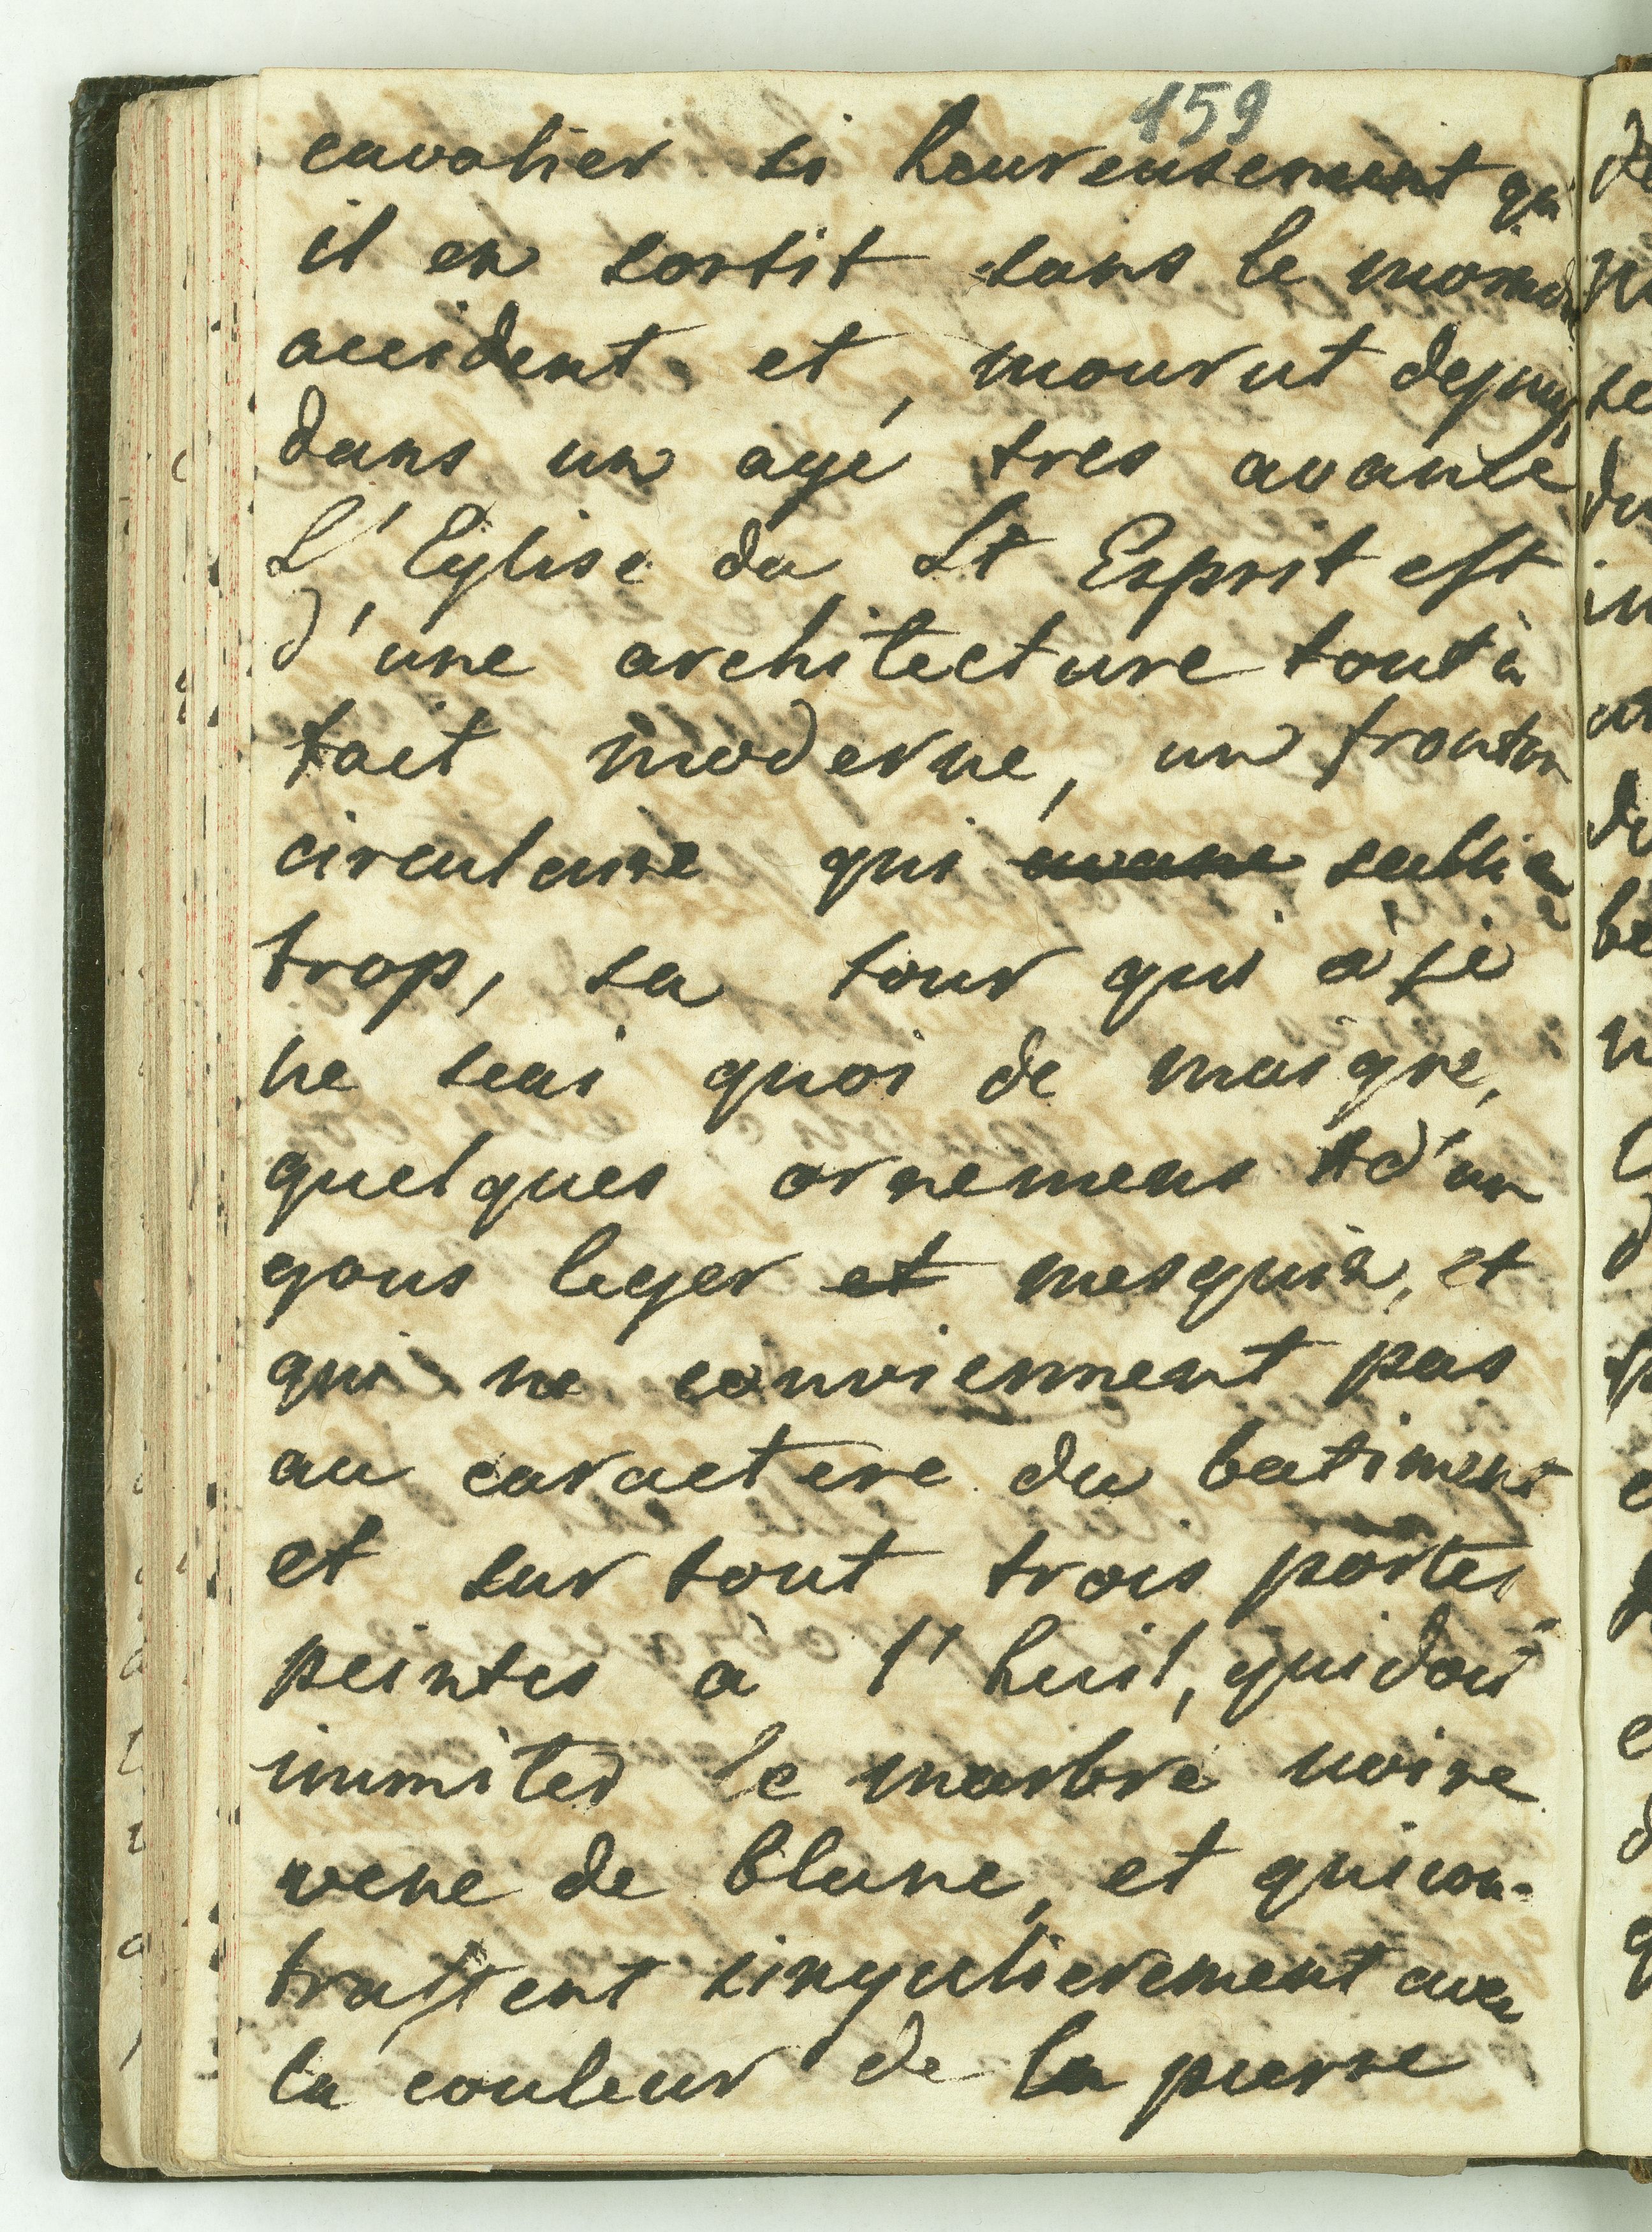 159
cavalier si heureusement qu
il en sortit sans le moindre
accident et, mourut depuis,
dans un agé tres avancé
L'Eglise du St Esprit est
d'une architecture tout à
fait moderne, un fronton
circulaire qui avance saillie
trop, sa tour qui à je
ne scai quoi de maigre,
quelques ornemens d'un
gous leger et mesquin, et
qui ne conviennent pas
au caractere du batiment
et sur tout trois portes
peintes à l'huil, qui doit
immiter le marbre noire
vene de blanc, et qui con-
trastent singulierement avec
la couleur de la pierre